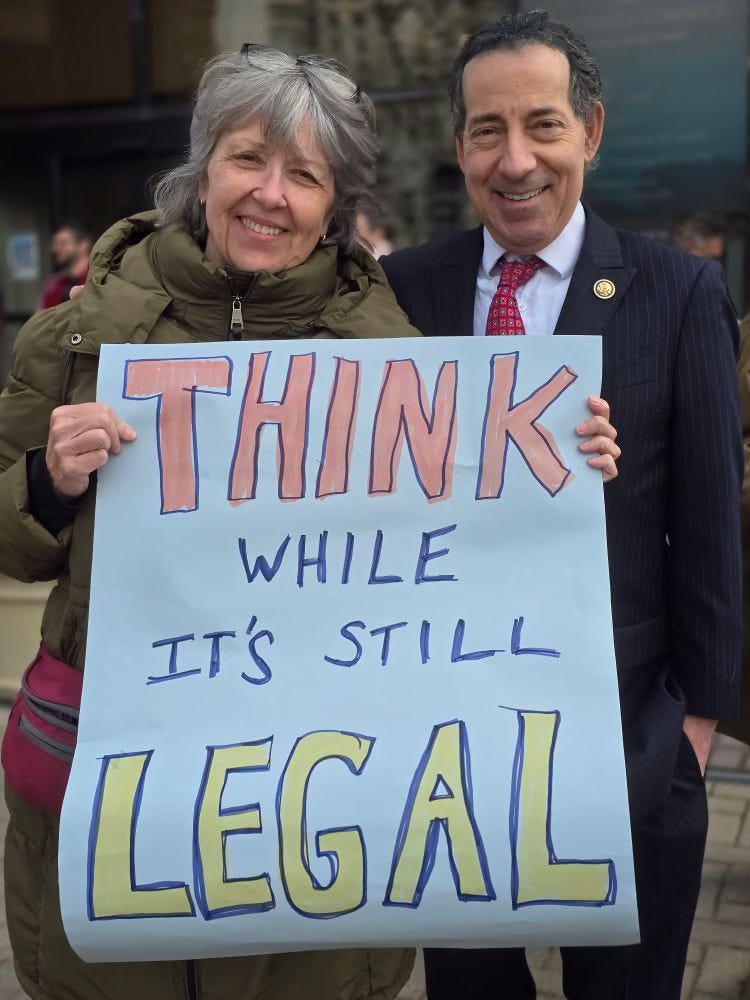 THINK
WHILE
IT'S STILL
LEGAL